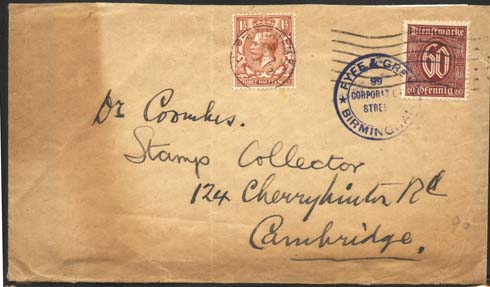 1½ 1½
Dienstmarke
60
Pfennig
FYFE &
99
STRE
BIRMINGHA
Dr Coombes.
Stamp Collector
124 Cherryhinton Rd
Cambridge.